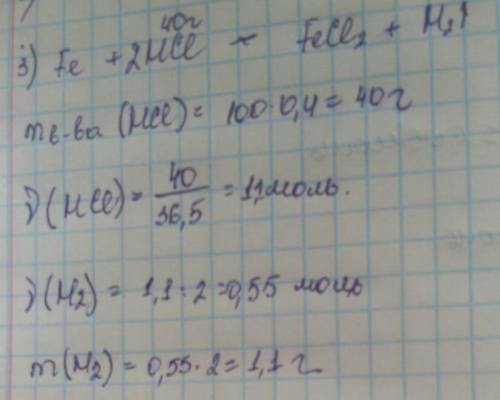 40г
3) Fe + 2HCl = FeCl₂ + H₂↑
m в-ва (HCl) = 100·0,4 = 40 г
ν(HCl) = 40/36,5 = 1,1 моль.
ν(H₂) = 1,1 : 2 = 0,55 моль
m(H₂) = 0,55·2 = 1,1 г